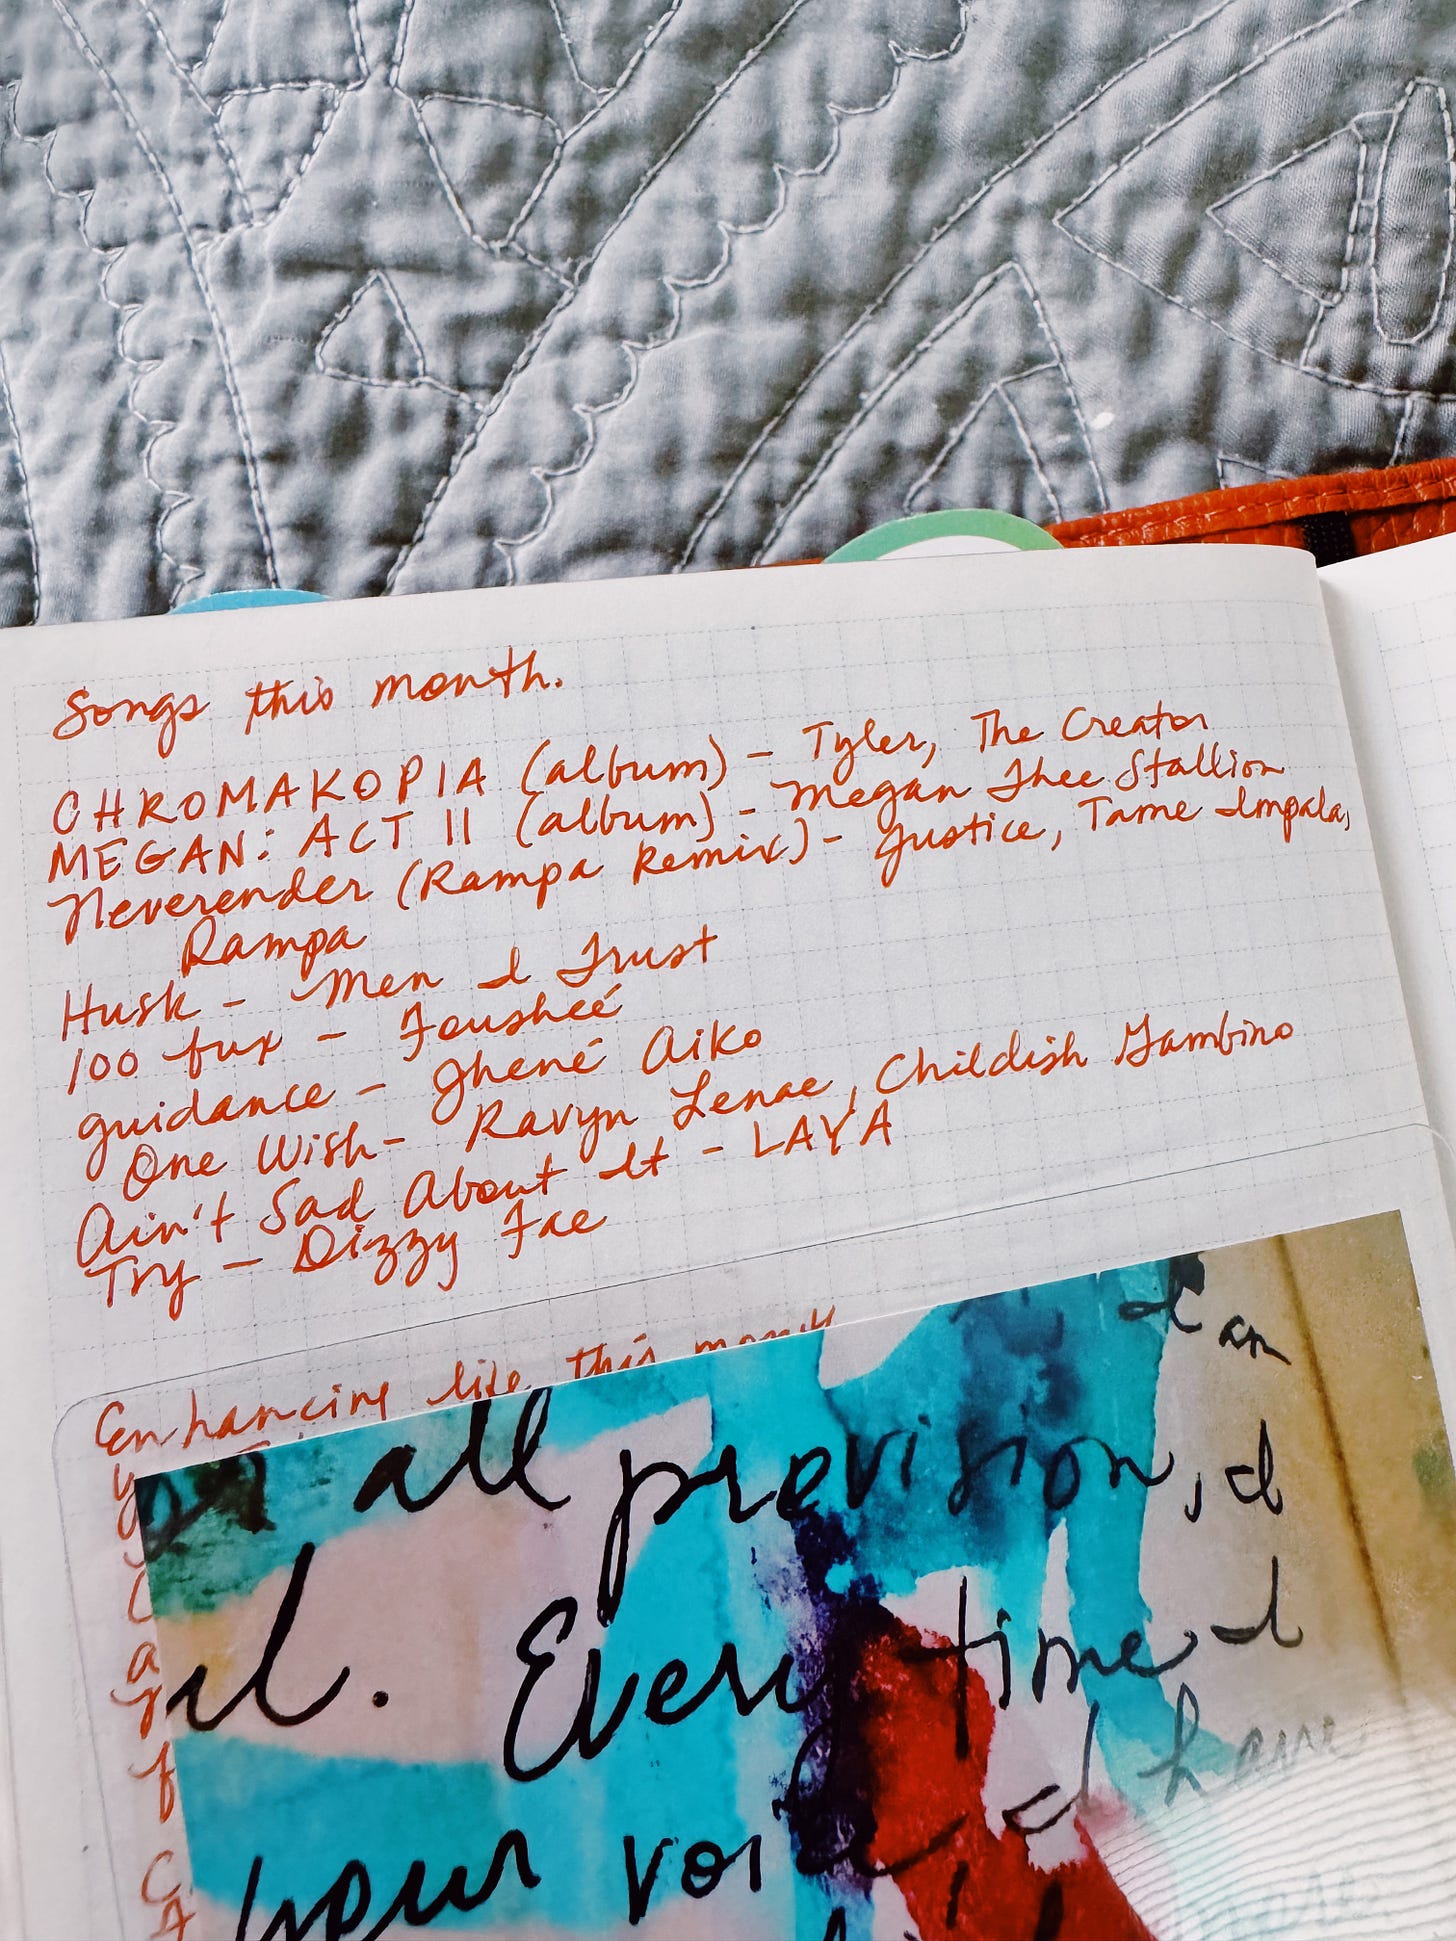 Songs this month.
CHROMAKOPIA (album) - Tyler, The Creator
MEGAN: ACT II (album) - Megan Thee Stallion
Neverender (Rampa Remix) - Justice, Tame Impala,
Rampa
Husk - Men I Trust
100 fux - Fousheé
guidance - Jhené Aiko
One Wish - Ravyn Lenae, Childish Gambino
Ain't Sad About It - LAYA
Try - Dizzy Fae
Enhancing life this month
I am
all provision, I
Every time I
your voice, I have